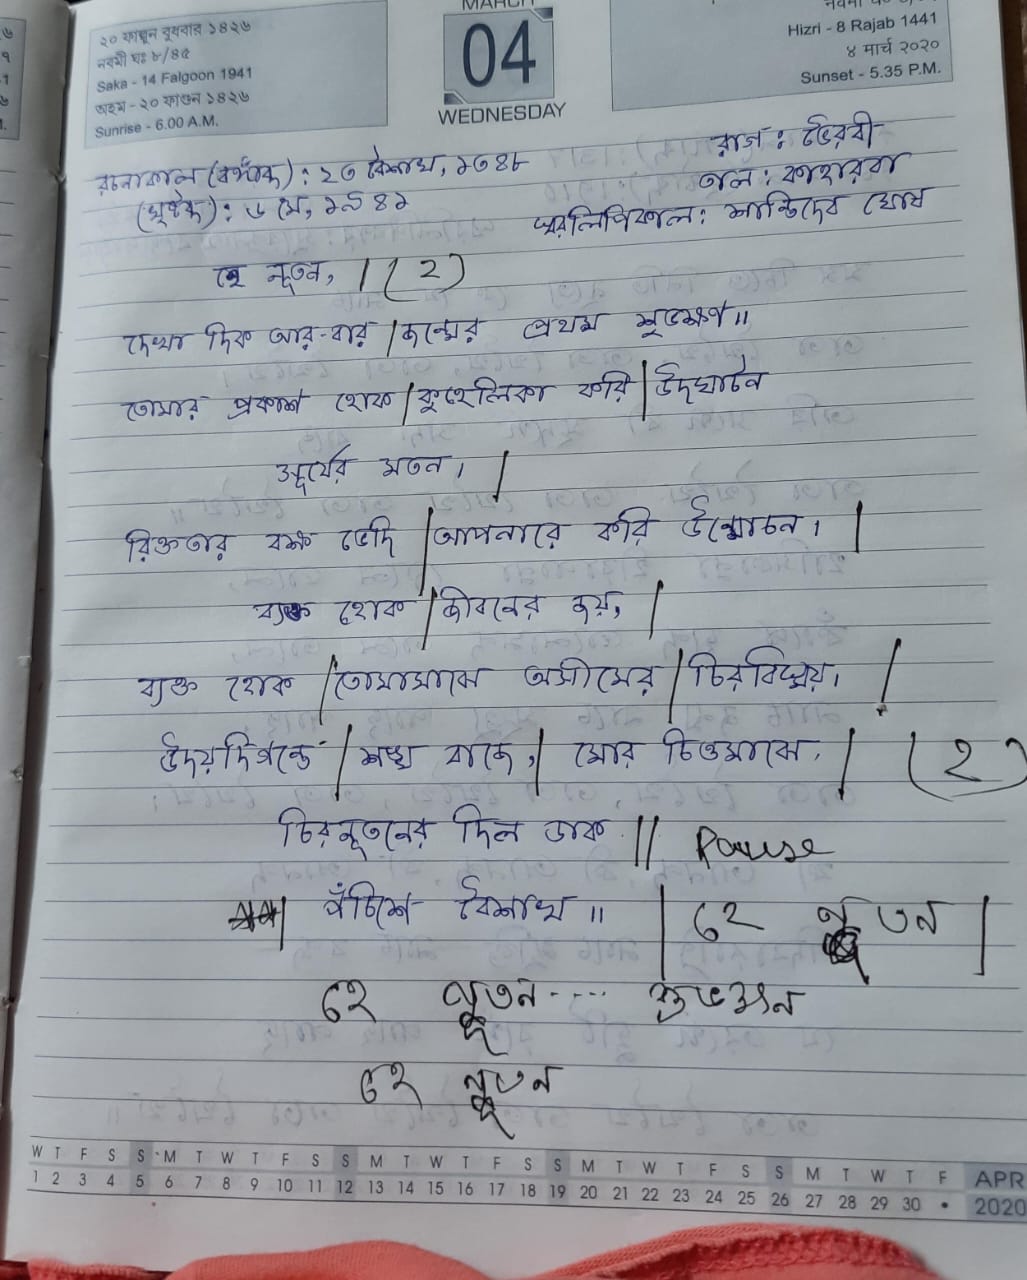 MARCH
২০ ফাল্গুন বুধবার ১৪২৬
নবমী ঘঃ ৮/৪৫
Saka - 14 Falgoon 1941
অহম - ২০ ফাগুন ১৪২৬
Sunrise - 6.00 A.M.
04
WEDNESDAY
Hizri - 8 Rajab 1441
৪ মার্চ ২০২০
Sunset - 5.35 P.M.
রচনাকাল (বঙ্গাব্দ) : ২৩ বৈশাখ, ১৩৪৮
(খৃষ্টাব্দ) : ৬ মে, ১৯৪১
রাগ : ভৈরবী
তাল : কাহারবা
স্বরলিপিকাল : শান্তিদেব ঘোষ
হে নূতন, | (২)
দেখা দিক আর-বার | জন্মের প্রথম শুভক্ষণ॥
তোমার প্রকাশ হোক | কুহেলিকা করি | উদঘাটন
সূর্যের মতন। |
রিক্ততার বক্ষ ভেদি | আপনারে করি উন্মোচন। |
ব্যক্ত হোক | জীবনের জয়, |
ব্যক্ত হোক | তোমামাঝে অসীমের | চিরবিস্ময়। |
উদয়দিগন্তে | শঙ্খ বাজে, | মোর চিত্তমাঝে, | (২)
চিরনূতনের দিল ডাক || Pause
| পঁচিশে বৈশাখ॥ | হে নূতন |
হে নূতন .... শুভক্ষন
হে নূতন
W T F S S M T W T F S S M T W T F S S M T W T F S S M T W T F APR
1 2 3 4 5 6 7 8 9 10 11 12 13 14 15 16 17 18 19 20 21 22 23 24 25 26 27 28 29 30 • 2020